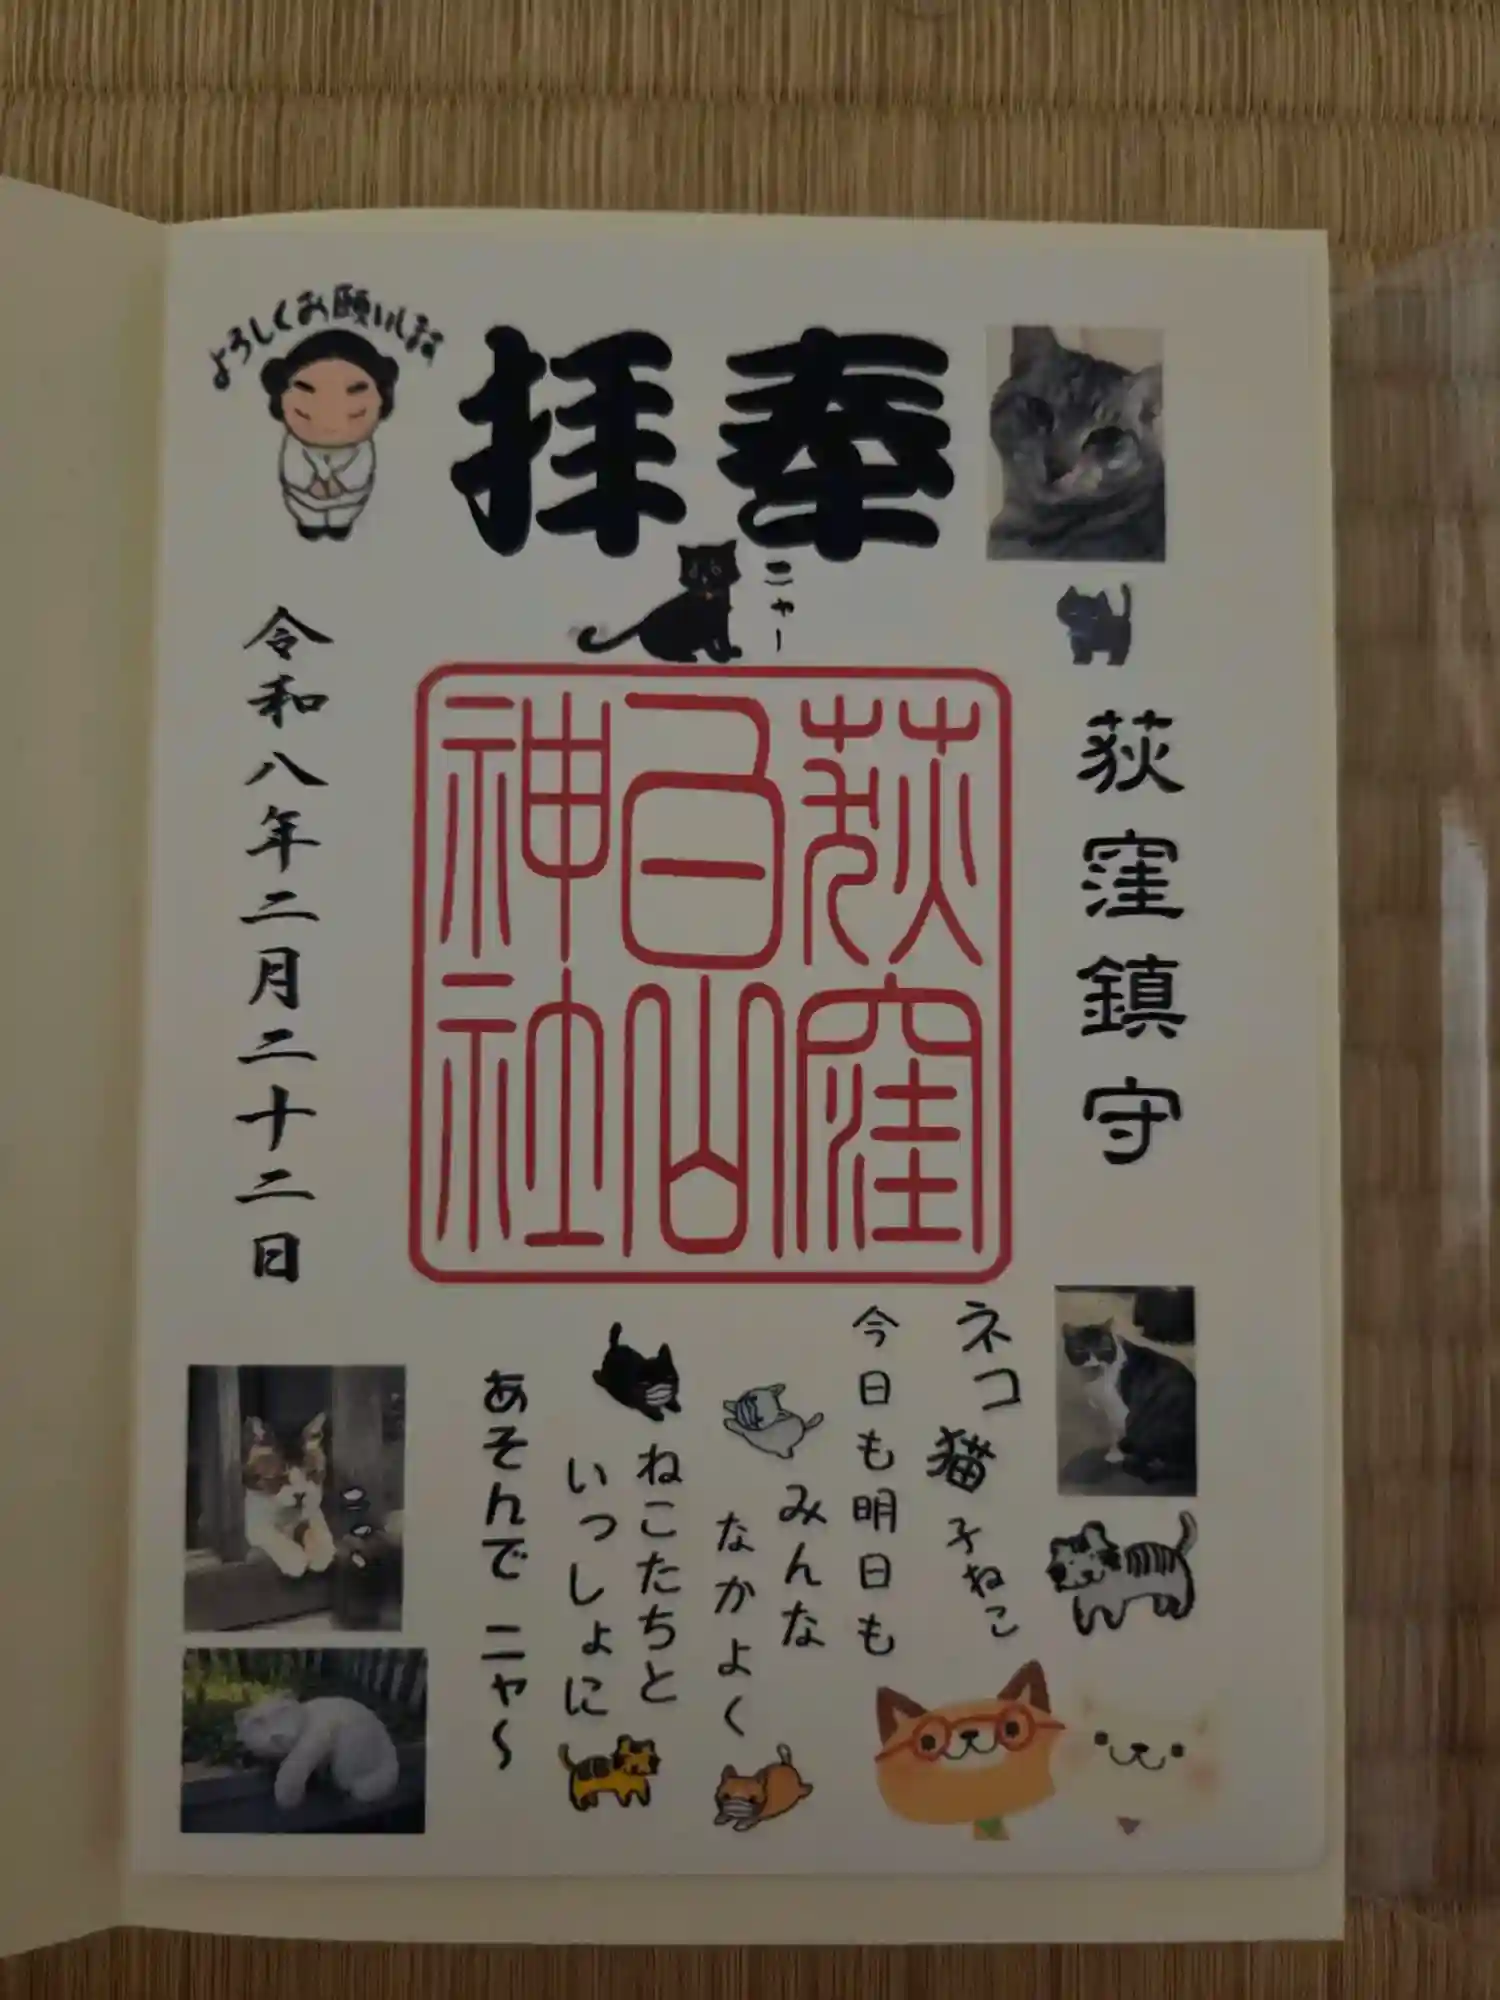 奉拝
よろしくお願いします
ニャー
荻窪鎮守
荻窪
白山
神社
令和八年二月二十二日
ネコ猫子ねこ
今日も明日も
みんな
なかよく
ねこたちと
いっしょに
あそんでニャ〜